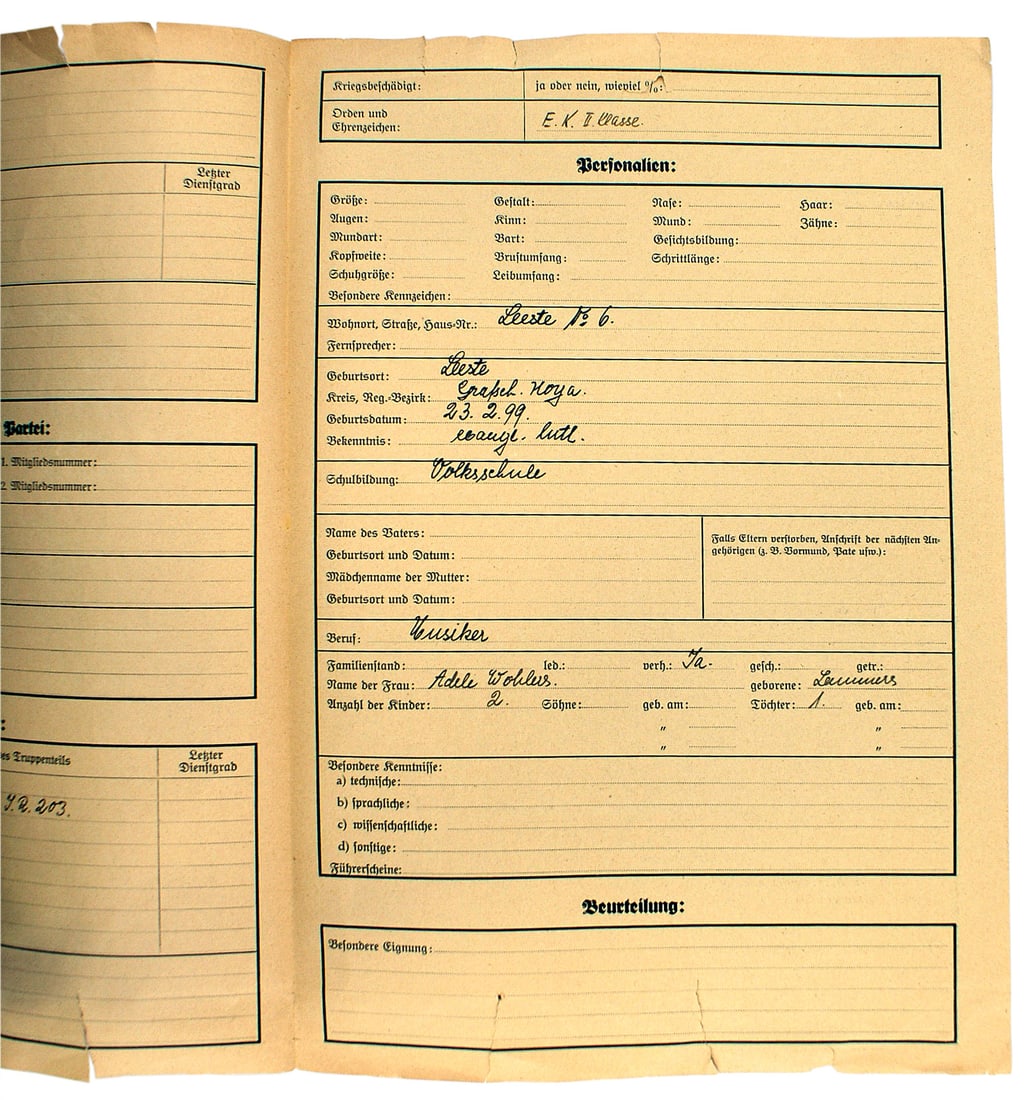 Letzter
Dienstgrad
Partei:
1. Mitgliedsnummer:
2. Mitgliedsnummer:
:
es Truppenteils
Letzter
Dienstgrad
J. R. 203.
Kriegsbeschädigt: ja oder nein, wieviel %:
Orden und
Ehrenzeichen: E. K. II. Classe.
Personalien:
Größe: Gestalt: Nase: Haar:
Augen: Kinn: Mund: Zähne:
Mundart: Bart: Gesichtsbildung:
Kopfweite: Brustumfang: Schrittlänge:
Schuhgröße: Leibumfang:
Besondere Kennzeichen:
Wohnort, Straße, Haus-Nr.: Leeste No 6.
Fernsprecher:
Geburtsort: Leeste
Kreis, Reg.-Bezirk: Grafsch. Hoya.
Geburtsdatum: 23. 2. 99.
Bekenntnis: evangl. luth.
Schulbildung: Volksschule
Name des Vaters:
Geburtsort und Datum:
Mädchenname der Mutter:
Geburtsort und Datum:
Falls Eltern verstorben, Anschrift der nächsten An-
gehörigen (z. B. Vormund, Pate usw.):
Beruf: Musiker
Familienstand: led.: verh.: Ja. gesch.: getr.:
Name der Frau: Adele Wohlers. geborene: Lammers
Anzahl der Kinder: 2. Söhne: geb. am: Töchter: 1. geb. am:
" "
" "
Besondere Kenntnisse:
a) technische:
b) sprachliche:
c) wissenschaftliche:
d) sonstige:
Führerscheine:
Beurteilung:
Besondere Eignung: